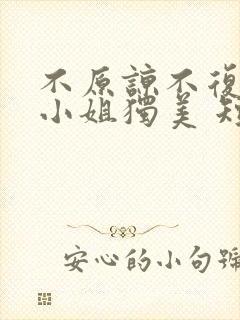 不原諒不復
小姐獨美 短
安心的小句號